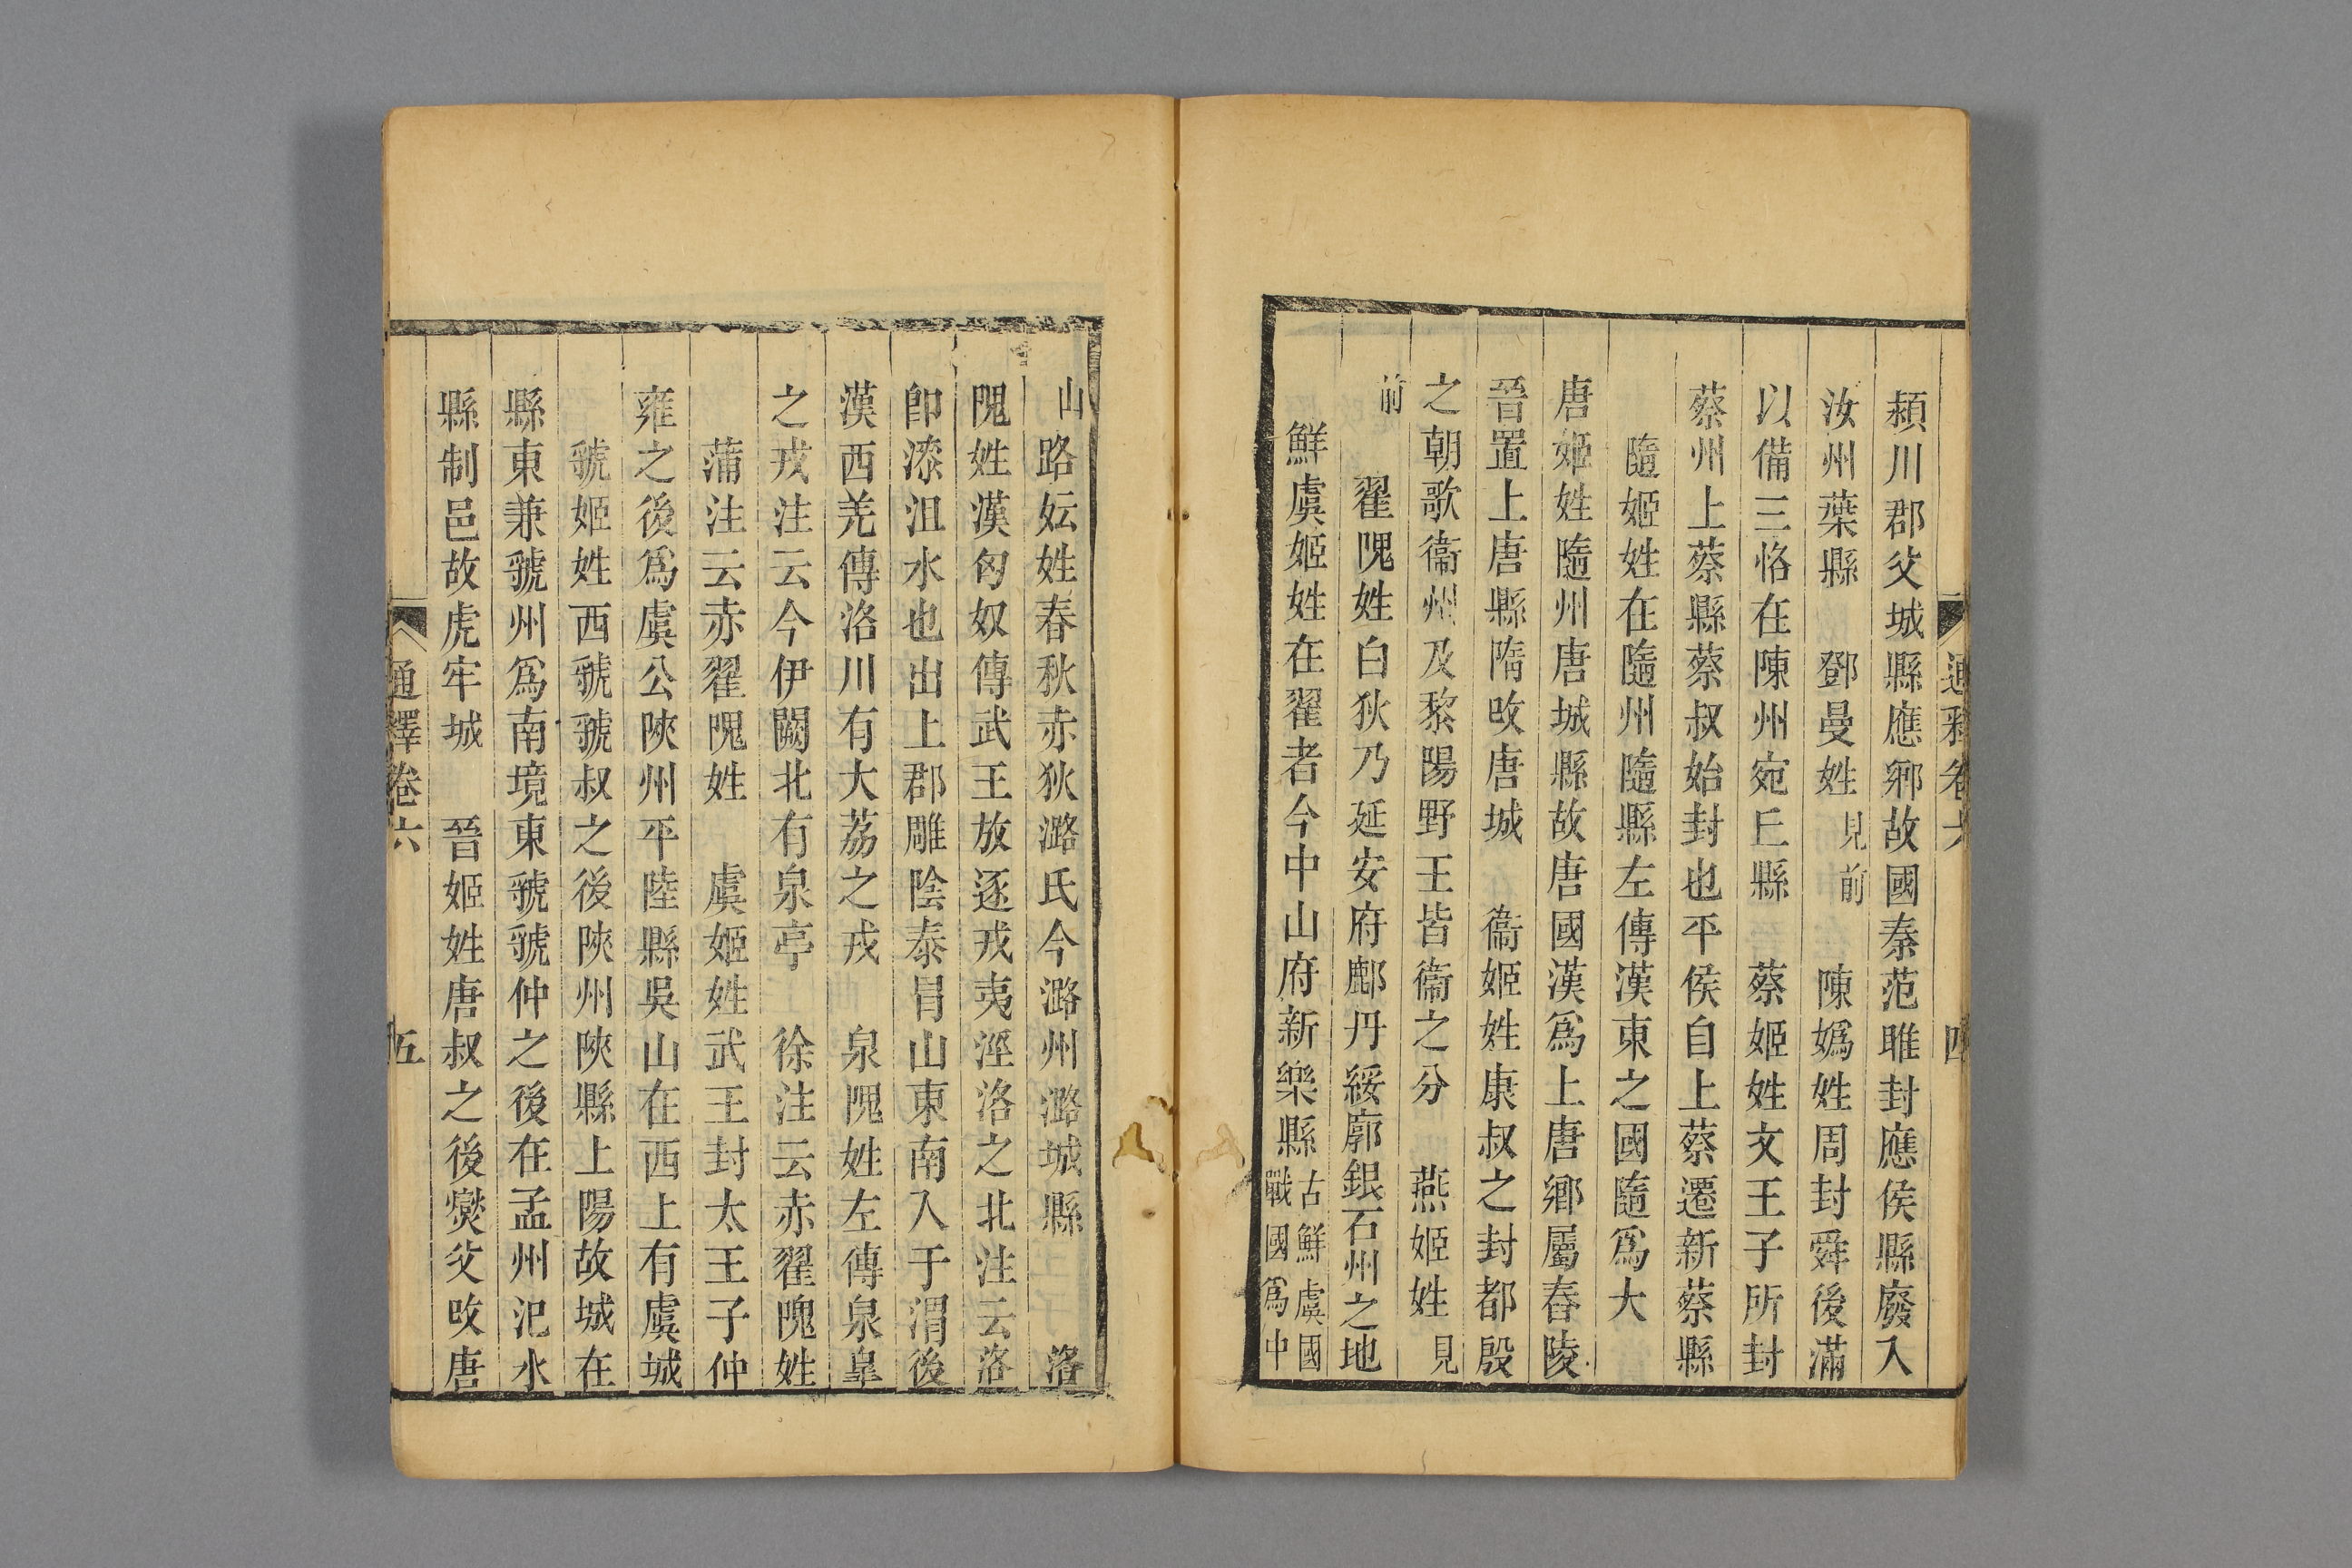 通釋卷六　四
潁川郡父城縣應鄉故國秦范雎封應侯縣廢入
汝州葉縣　鄧曼姓見前　陳嬀姓周封舜後滿
以備三恪在陳州宛丘縣　蔡姬姓文王子所封
蔡州上蔡縣蔡叔始封也平侯自上蔡遷新蔡縣
隨姬姓在隨州隨縣左傳漢東之國隨爲大
唐姬姓隨州唐城縣故唐國漢爲上唐鄉屬舂陵
晉置上唐縣隋攺唐城　衞姬姓康叔之封都殷
之朝歌衞州及黎陽野王皆衞之分　燕姬姓見
前　翟隗姓白狄乃延安府鄜丹綏廓銀石州之地
鮮虞姬姓在翟者今中山府新樂縣古鮮虞國戰國爲中
山　路妘姓春秋赤狄潞氏今潞州潞城縣　洛
隗姓漢匈奴傳武王放逐戎夷涇洛之北注云洛
卽漆沮水也出上郡雕陰泰冒山東南入于渭後
漢西羌傳洛川有大荔之戎　泉隗姓左傳泉臯
之戎注云今伊闕北有泉亭　徐注云赤翟隗姓
蒲注云赤翟隗姓　虞姬姓武王封太王子仲
雍之後爲虞公陝州平陸縣吳山在西上有虞城
虢姬姓西虢虢叔之後陝州陝縣上陽故城在
縣東兼虢州爲南境東虢虢仲之後在孟州汜水
縣制邑故虎牢城　晉姬姓唐叔之後燮父攺唐
通釋卷六　五